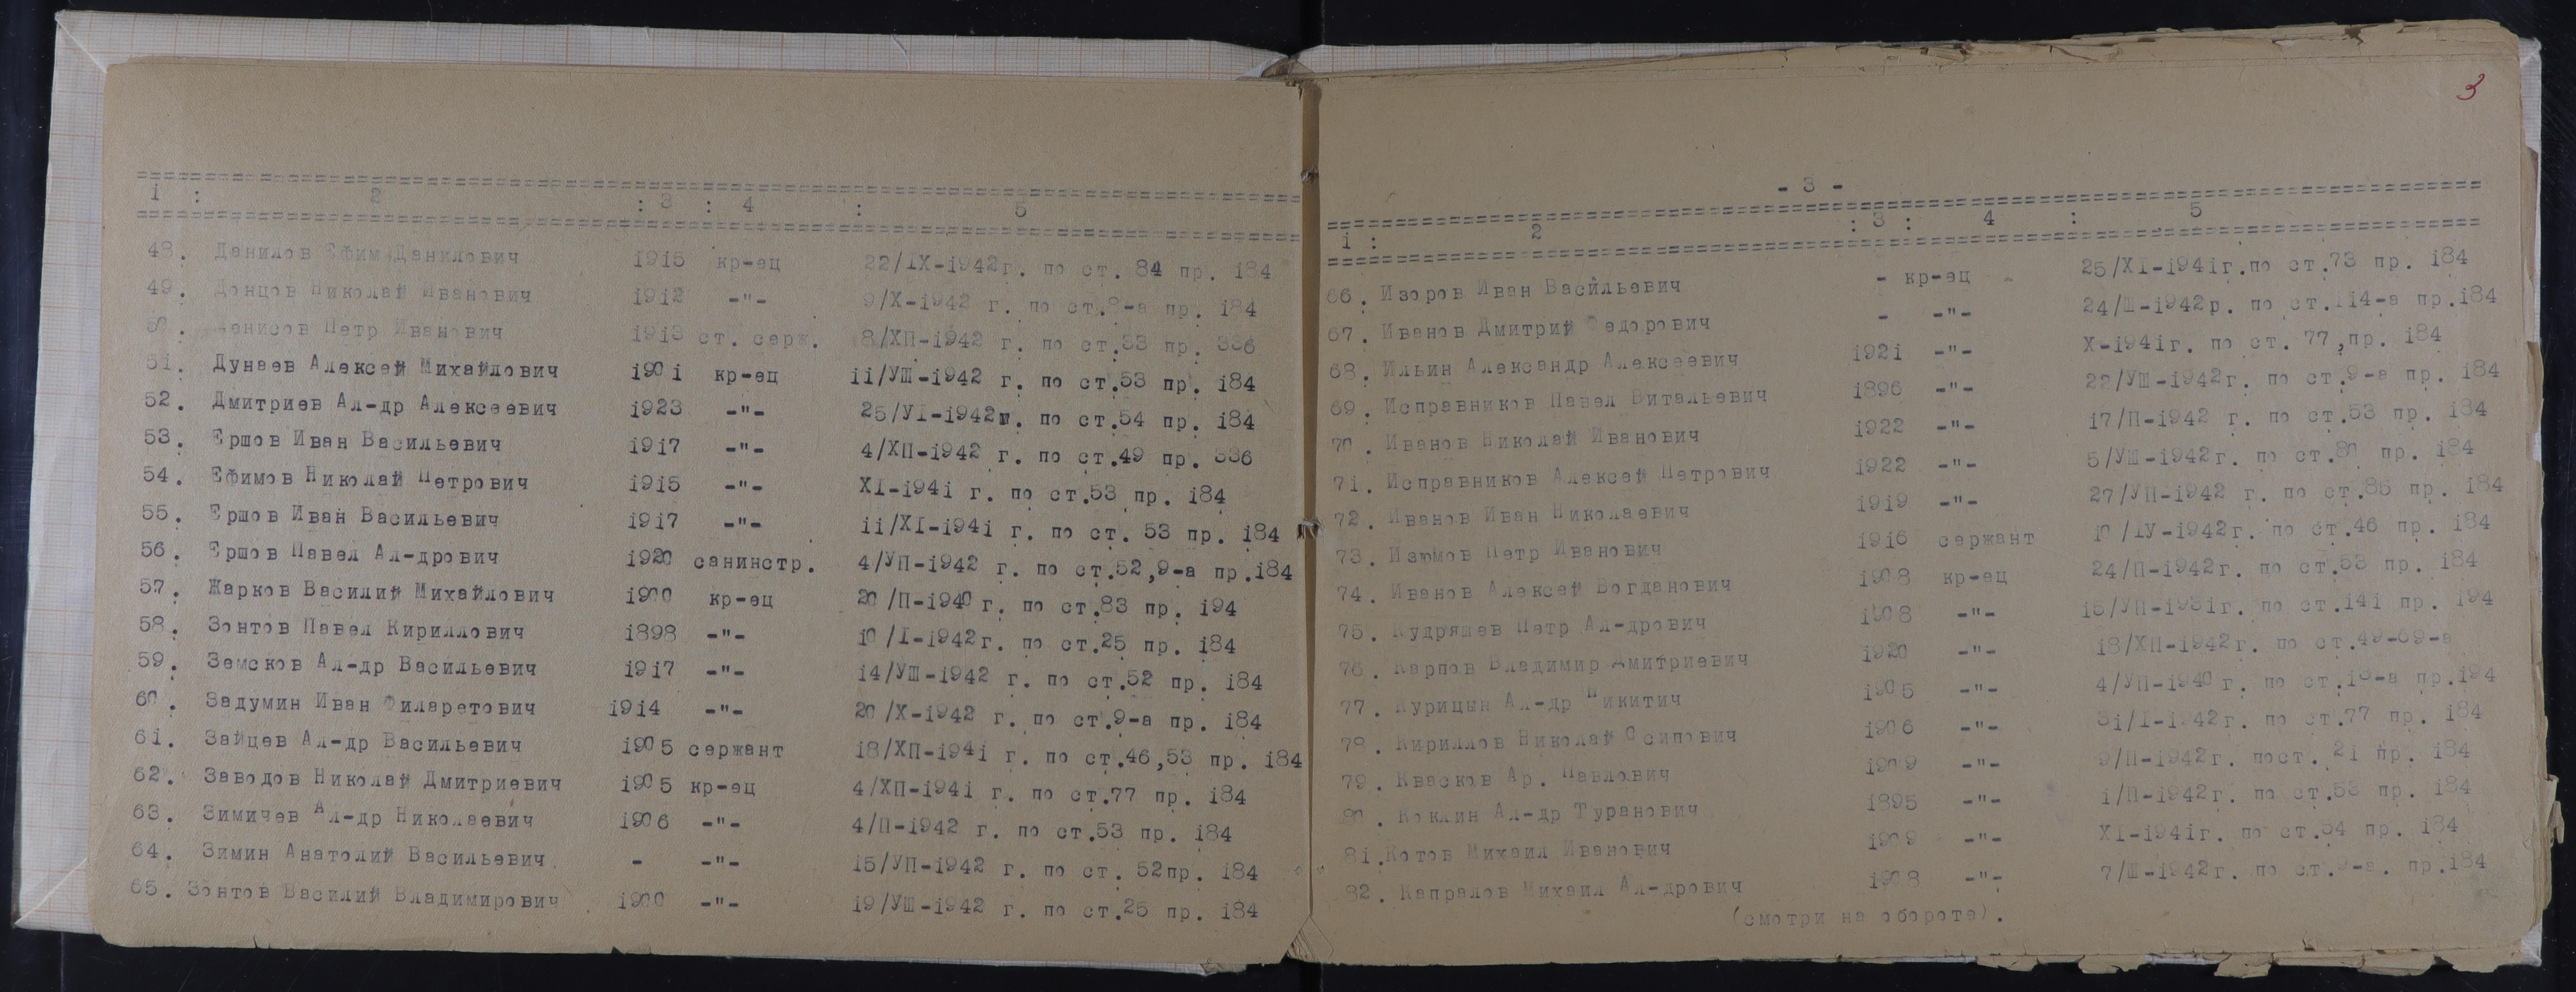 1 : 2 : 3 : 4 : 5
48. Данилов Ефим Данилович 1915 кр-ец 22/IX-1942г. по ст. 84 пр. 184
49. Донцов Николай Иванович 1912 -"- 9/X-1942 г. по ст.8-а пр. 184
50. Денисов Петр Иванович 1913 ст. серж. 8/ХП-1942 г. по ст.33 пр. 336
51. Дунаев Алексей Михайлович 1901 кр-ец 11/УШ-1942 г. по ст.53 пр. 184
52. Дмитриев Ал-др Алексеевич 1923 -"- 25/УI-1942г. по ст.54 пр. 184
53. Ершов Иван Васильевич 1917 -"- 4/ХП-1942 г. по ст.49 пр. 336
54. Ефимов Николай Петрович 1915 -"- XI-1941 г. по ст.53 пр. 184
55. Ершов Иван Васильевич 1917 -"- 11/XI-1941 г. по ст. 53 пр. 184
56. Ершов Павел Ал-дрович 1920 санинстр. 4/УП-1942 г. по ст.52,9-а пр.184
57. Жарков Василий Михайлович 1900 кр-ец 20/П-1940 г. по ст.83 пр. 194
58. Зонтов Павел Кириллович 1898 -"- 10/I-1942г. по ст.25 пр. 184
59. Земсков Ал-др Васильевич 1917 -"- 14/УШ-1942 г. по ст.52 пр. 184
60. Задумин Иван Филаретович 1914 -"- 20/X-1942 г. по ст.9-а пр. 184
61. Зайцев Ал-др Васильевич 1905 сержант 18/ХП-1941 г. по ст.46,53 пр. 184
62. Заводов Николай Дмитриевич 1905 кр-ец 4/ХП-1941 г. по ст.77 пр. 184
63. Зимичев Ал-др Николаевич 1906 -"- 4/П-1942 г. по ст.53 пр. 184
64. Зимин Анатолий Васильевич. - -"- 15/УП-1942 г. по ст. 52пр. 184
65. Зонтов Василий Владимирович 1900 -"- 19/УШ-1942 г. по ст.25 пр. 184
3
- 3 -
1 : 2 : 3 : 4 : 5
66. Изоров Иван Васильевич - кр-ец 25/XI-1941г.по ст.73 пр. 184
67. Иванов Дмитрий Федорович - -"- 24/Ш-1942р. по ст.114-а пр.184
68. Ильин Александр Алексеевич 1921 -"- X-1941г. по ст. 77,пр. 184
69. Исправников Павел Витальевич 1896 -"- 22/УШ-1942г. по ст.9-а пр. 184
70. Иванов Николай Иванович 1922 -"- 17/П-1942 г. по ст.53 пр. 184
71. Исправников Алексей Петрович 1922 -"- 5/УШ-1942г. по ст.80 пр. 184
72. Иванов Иван Николаевич 1919 -"- 27/УП-1942 г. по ст.85 пр. 184
73. Изюмов Петр Иванович 1916 сержант 10/IУ-1942г. по ст.46 пр. 184
74. Иванов Алексей Богданович 1908 кр-ец 24/П-1942г. по ст.53 пр. 184
75. Кудряшев Петр Ал-дрович 1908 -"- 15/УП-1931г. по ст.141 пр. 194
76. Карпов Владимир Дмитриевич 1920 -"- 18/ХП-1942г. по ст.49-69-а
77. Курицын Ал-др Никитич 1905 -"- 4/УП-1940 г. по ст.18-а пр.194
78. Кириллов Николай Осипович 1906 -"- 31/I-1942г. по ст.77 пр. 184
79. Квасков Ар. Павлович 1909 -"- 9/П-1942г. пост. 21 пр. 184
80. Коклин Ал-др Туранович 1895 -"- 1/П-1942г. по ст.53 пр. 184
81.Котов Михаил Иванович 1909 -"- XI-1941г. по ст.54 пр. 184
82. Капралов Михаил Ал-дрович 1908 -"- 7/Ш-1942г. по ст.9-а. пр.184
(смотри на обороте).